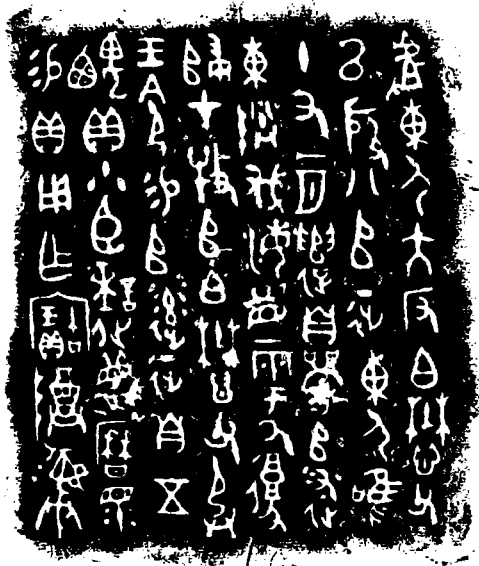 𠭯東夷大反白懋父
以殷八𠂤征東夷唯
十又一月遣自𠂤述
東伐海眉雩厥復
歸才牧𠂤白懋父承
王令易𠂤率征自五
齵貝小臣謎蔑曆眔
易貝用乍寶尊彝